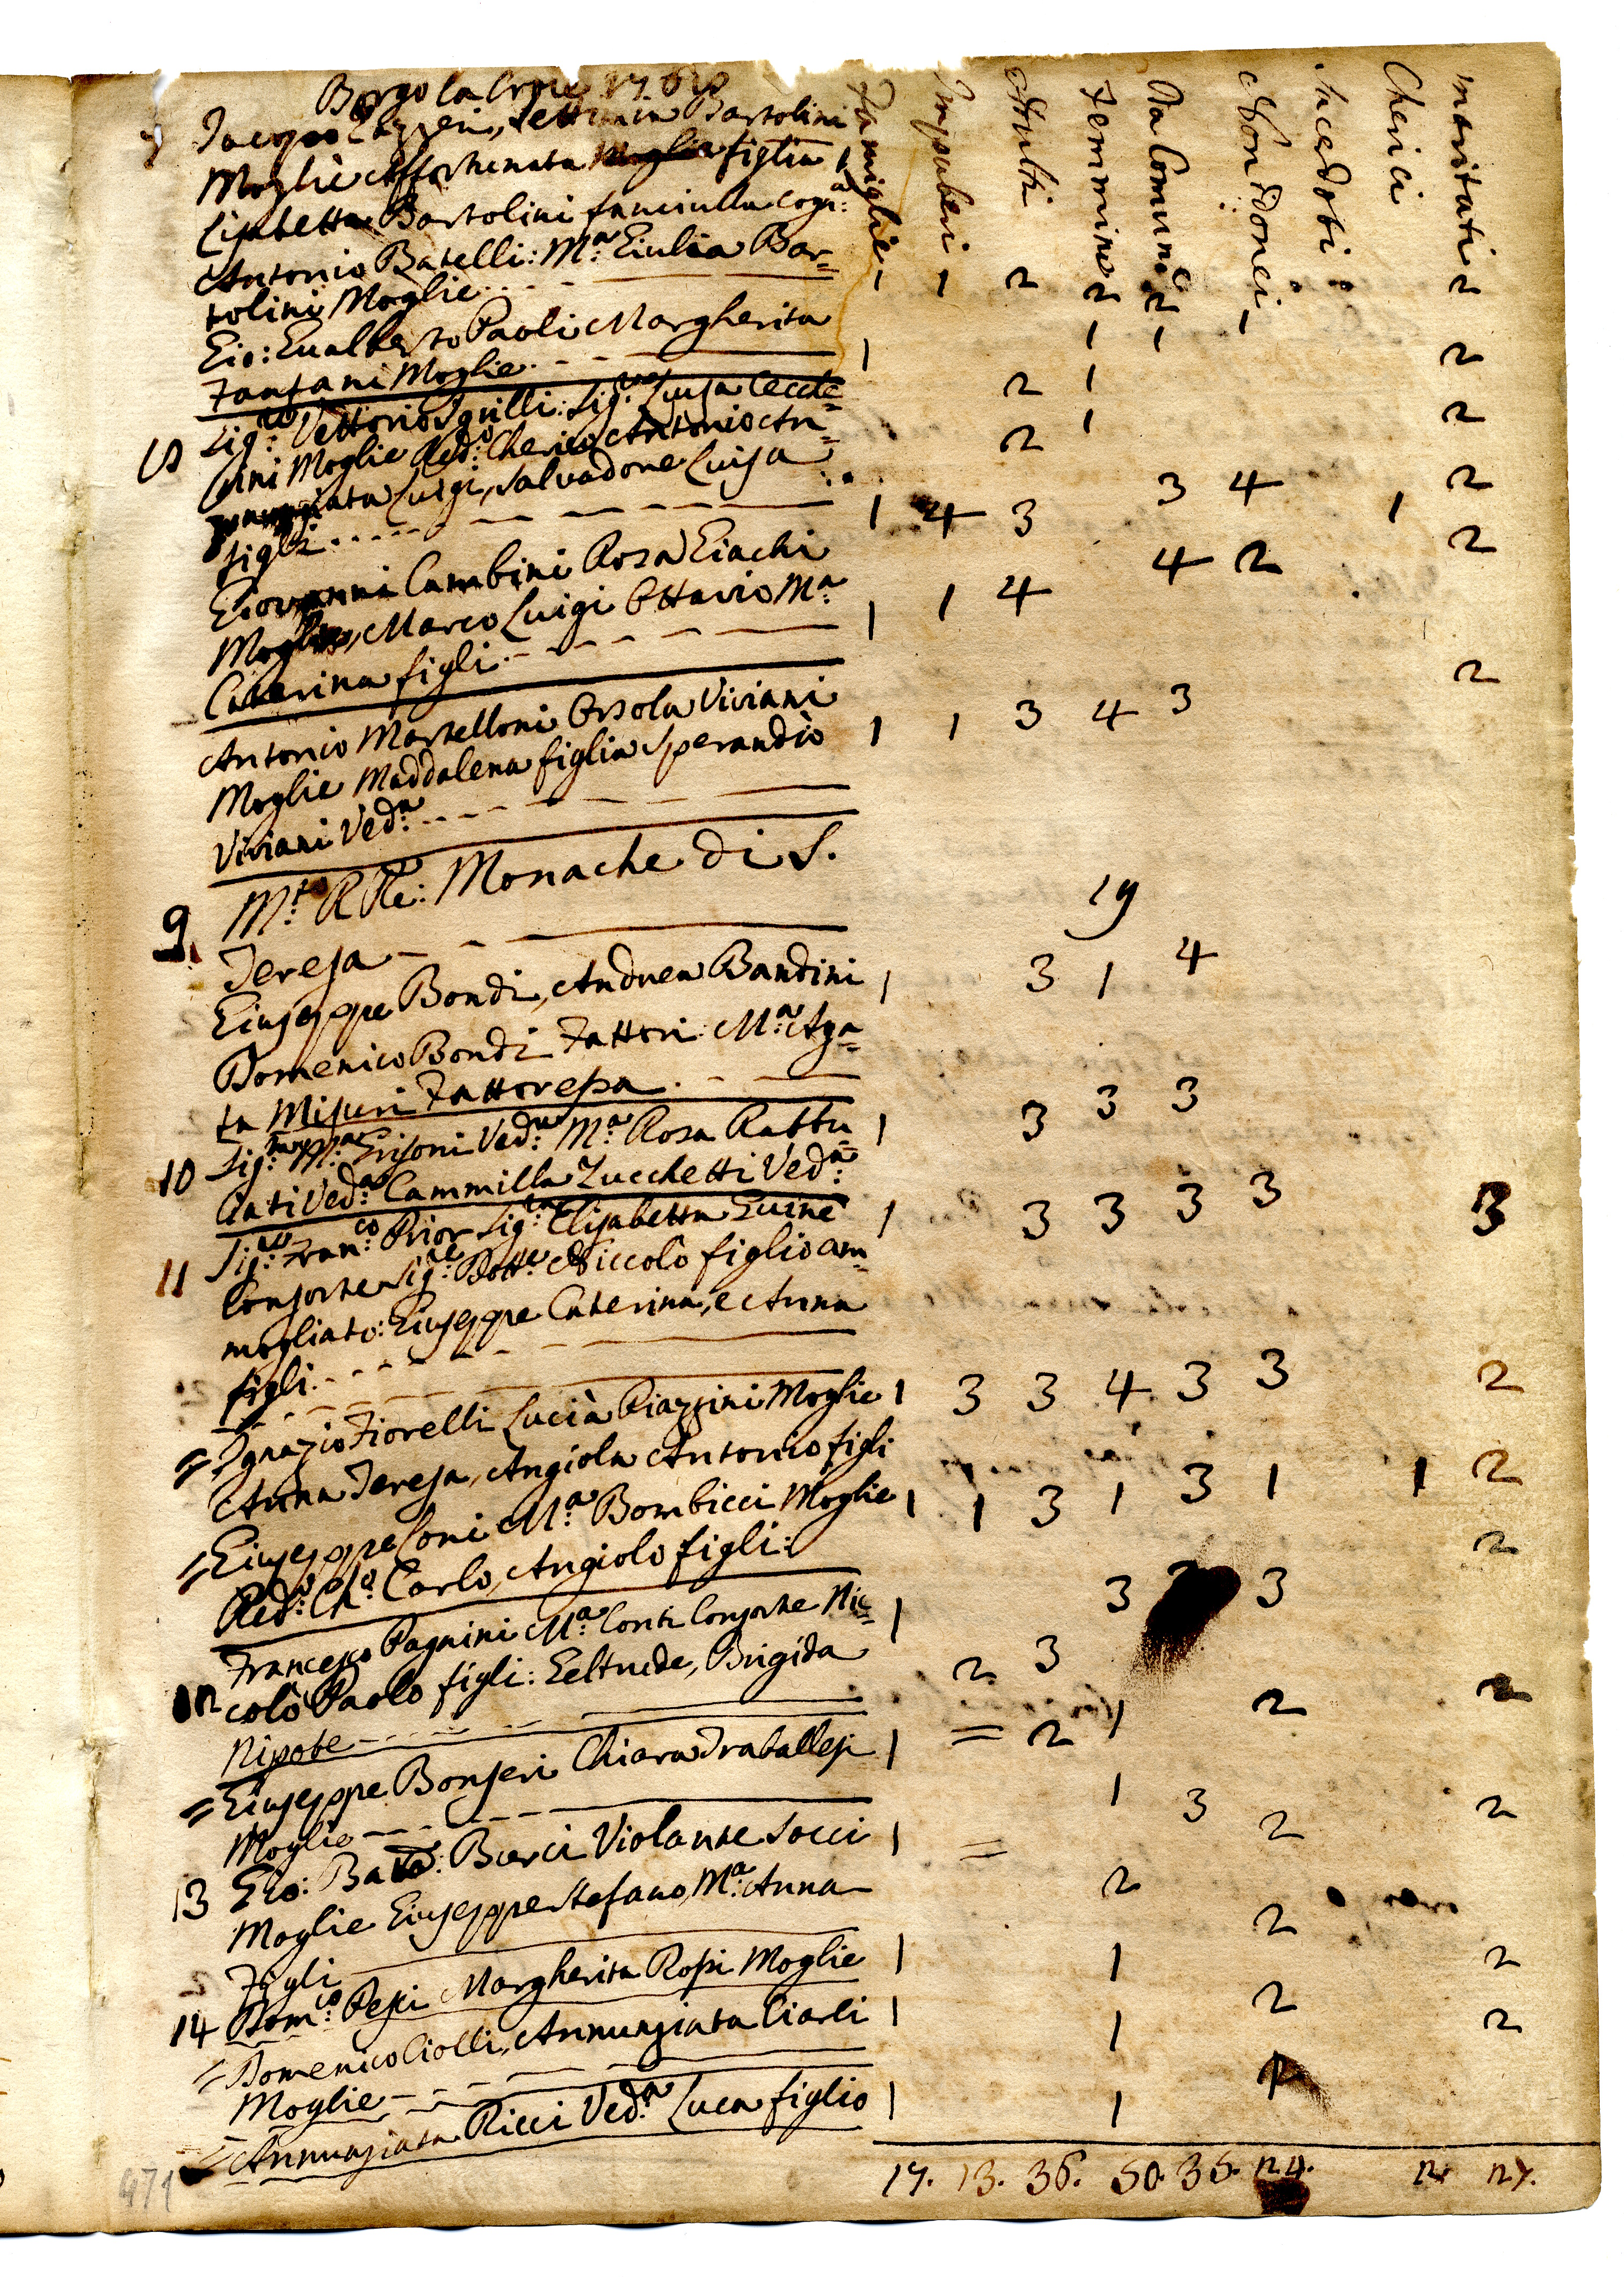 Borgo la Croce
Famiglie
Impuberi
Adulti
Femmine
Da Comunie
Non Idonei
Sacerdoti
Cherici
Maritati
7 Jacopo Vettoria Bartolini
Moglie Affortunata figlia 1
Lisabetta Bartolini fanciulla Cogn:a 1 1 2 2 2 1 2
Antonio Batelli: M:a Giulia Bar=
tolini Moglie 1 1
Gio: Gualberto Paoli Margherita 1 2
Fantani Moglie 2 1
Sig:re Vettorio Sgrilli: Sig:ra Luisa Cecche= 1 2
rini Moglie Red:o Cherico Antonio An= 2
nunziata Luigi, Salvadore Luisa
figli 1 4 3 3 4 1 2
Giovanni Cambini Rosa Giachi
Moglie, Marco Luigi Ottavio M:a
Caterina figli 1 1 4 4 2 2
Antonio Martelloni Orsola Viviani
Moglie Maddalena figlia Sperandio 1 1 3 4 3 2
Viviani Ved:a
9. M:to RRe: Monache di S.
Teresa 19
Giuseppe Bondi, Andrea Bandini 1 3 1 4
Domenico Bondi Fattori: M:a Aga=
ta Misuri Fattoressa
10 Sig:ra M:a Grifoni Ved:a M:a Rosa Rabbu 1 3 3 3
Cati Ved:a Cammilla Zucchetti Ved:a
11 Sig:re Fran:co Prior Sig:ra Elisabetta Guine 1 3 3 3 3 3
Consorte Sig:re Dott:e Niccolò figlio am=
mogliato: Giuseppe Caterina, e Anna
figli
= Ignazio Fiorelli Lucia Piazzini Moglie 1 3 3 4 3 3 2
Anna Teresa, Angiola Antonio figli
= Giuseppe Coni M:a Bombicci Moglie 1 1 3 1 3 1 1 2
Red:o Ch:o Carlo, Angiolo figli:
Francesco Pagnini M:a Conti Consorte Nic= 1 3 3 2
12 colò Paolo figli: Geltrude, Brigida 2 3
Nipote
= Giuseppe Bonseri Chiara Traballesi 1 = 2 1 2 2
Moglie
13 Gio: Batt:a: Burci Violante Socci 1 = 1 3 2 2
Moglie Giuseppe Stefano, M:a Anna 2
Figli
14 Dom:co Pepi Margherita Rossi Moglie 1 1 2 2
= Domenico Ciolli, Annunziata Ciarli 1 1 2 2
Moglie
= Annunziata Ricci Ved:a Luca figlio 1 1 1
17. 13. 36. 50. 36. 24. 2. 27.
471